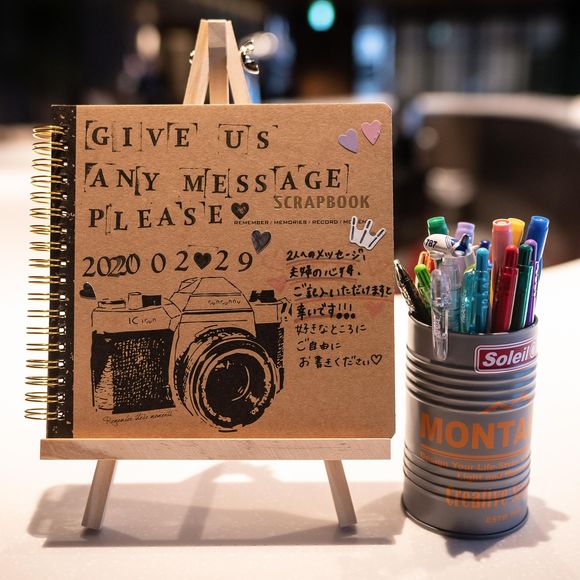 GIVE US
ANY MESSAGE
SCRAPBOOK
PLEASE
REMEMBER / MEMORIES / RECORD /
202002 29
2人へのメッセージ、
夫婦の心得、
ご記入いただけますと
幸いです!!!
好きなところに
ご自由に
お書きください♡
Soleil
MONTA
Design Your Life-Sty
Creative